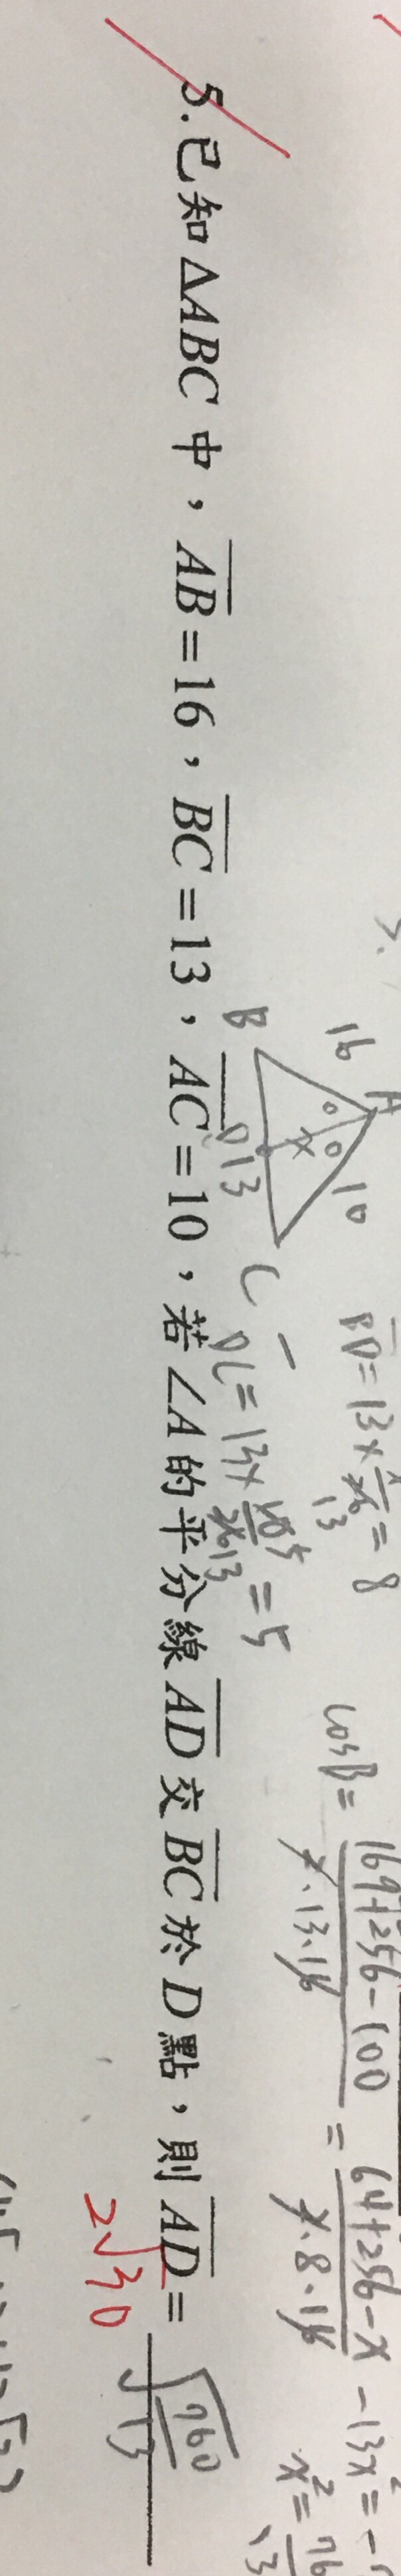 5.已知 ΔABC 中，AB=16，BC=13，AC=10，若∠A 的平分線 AD 交 BC 於 D 點，則 AD=
√(760/13)
2√30
A
16
10
B
D
13
C
x
BD=13×
=8
DC=13×
=5
cosB=(169+256-100)/(2·13·16)=(64+256-x)/(2·8·16)
-13x²=-
x²=